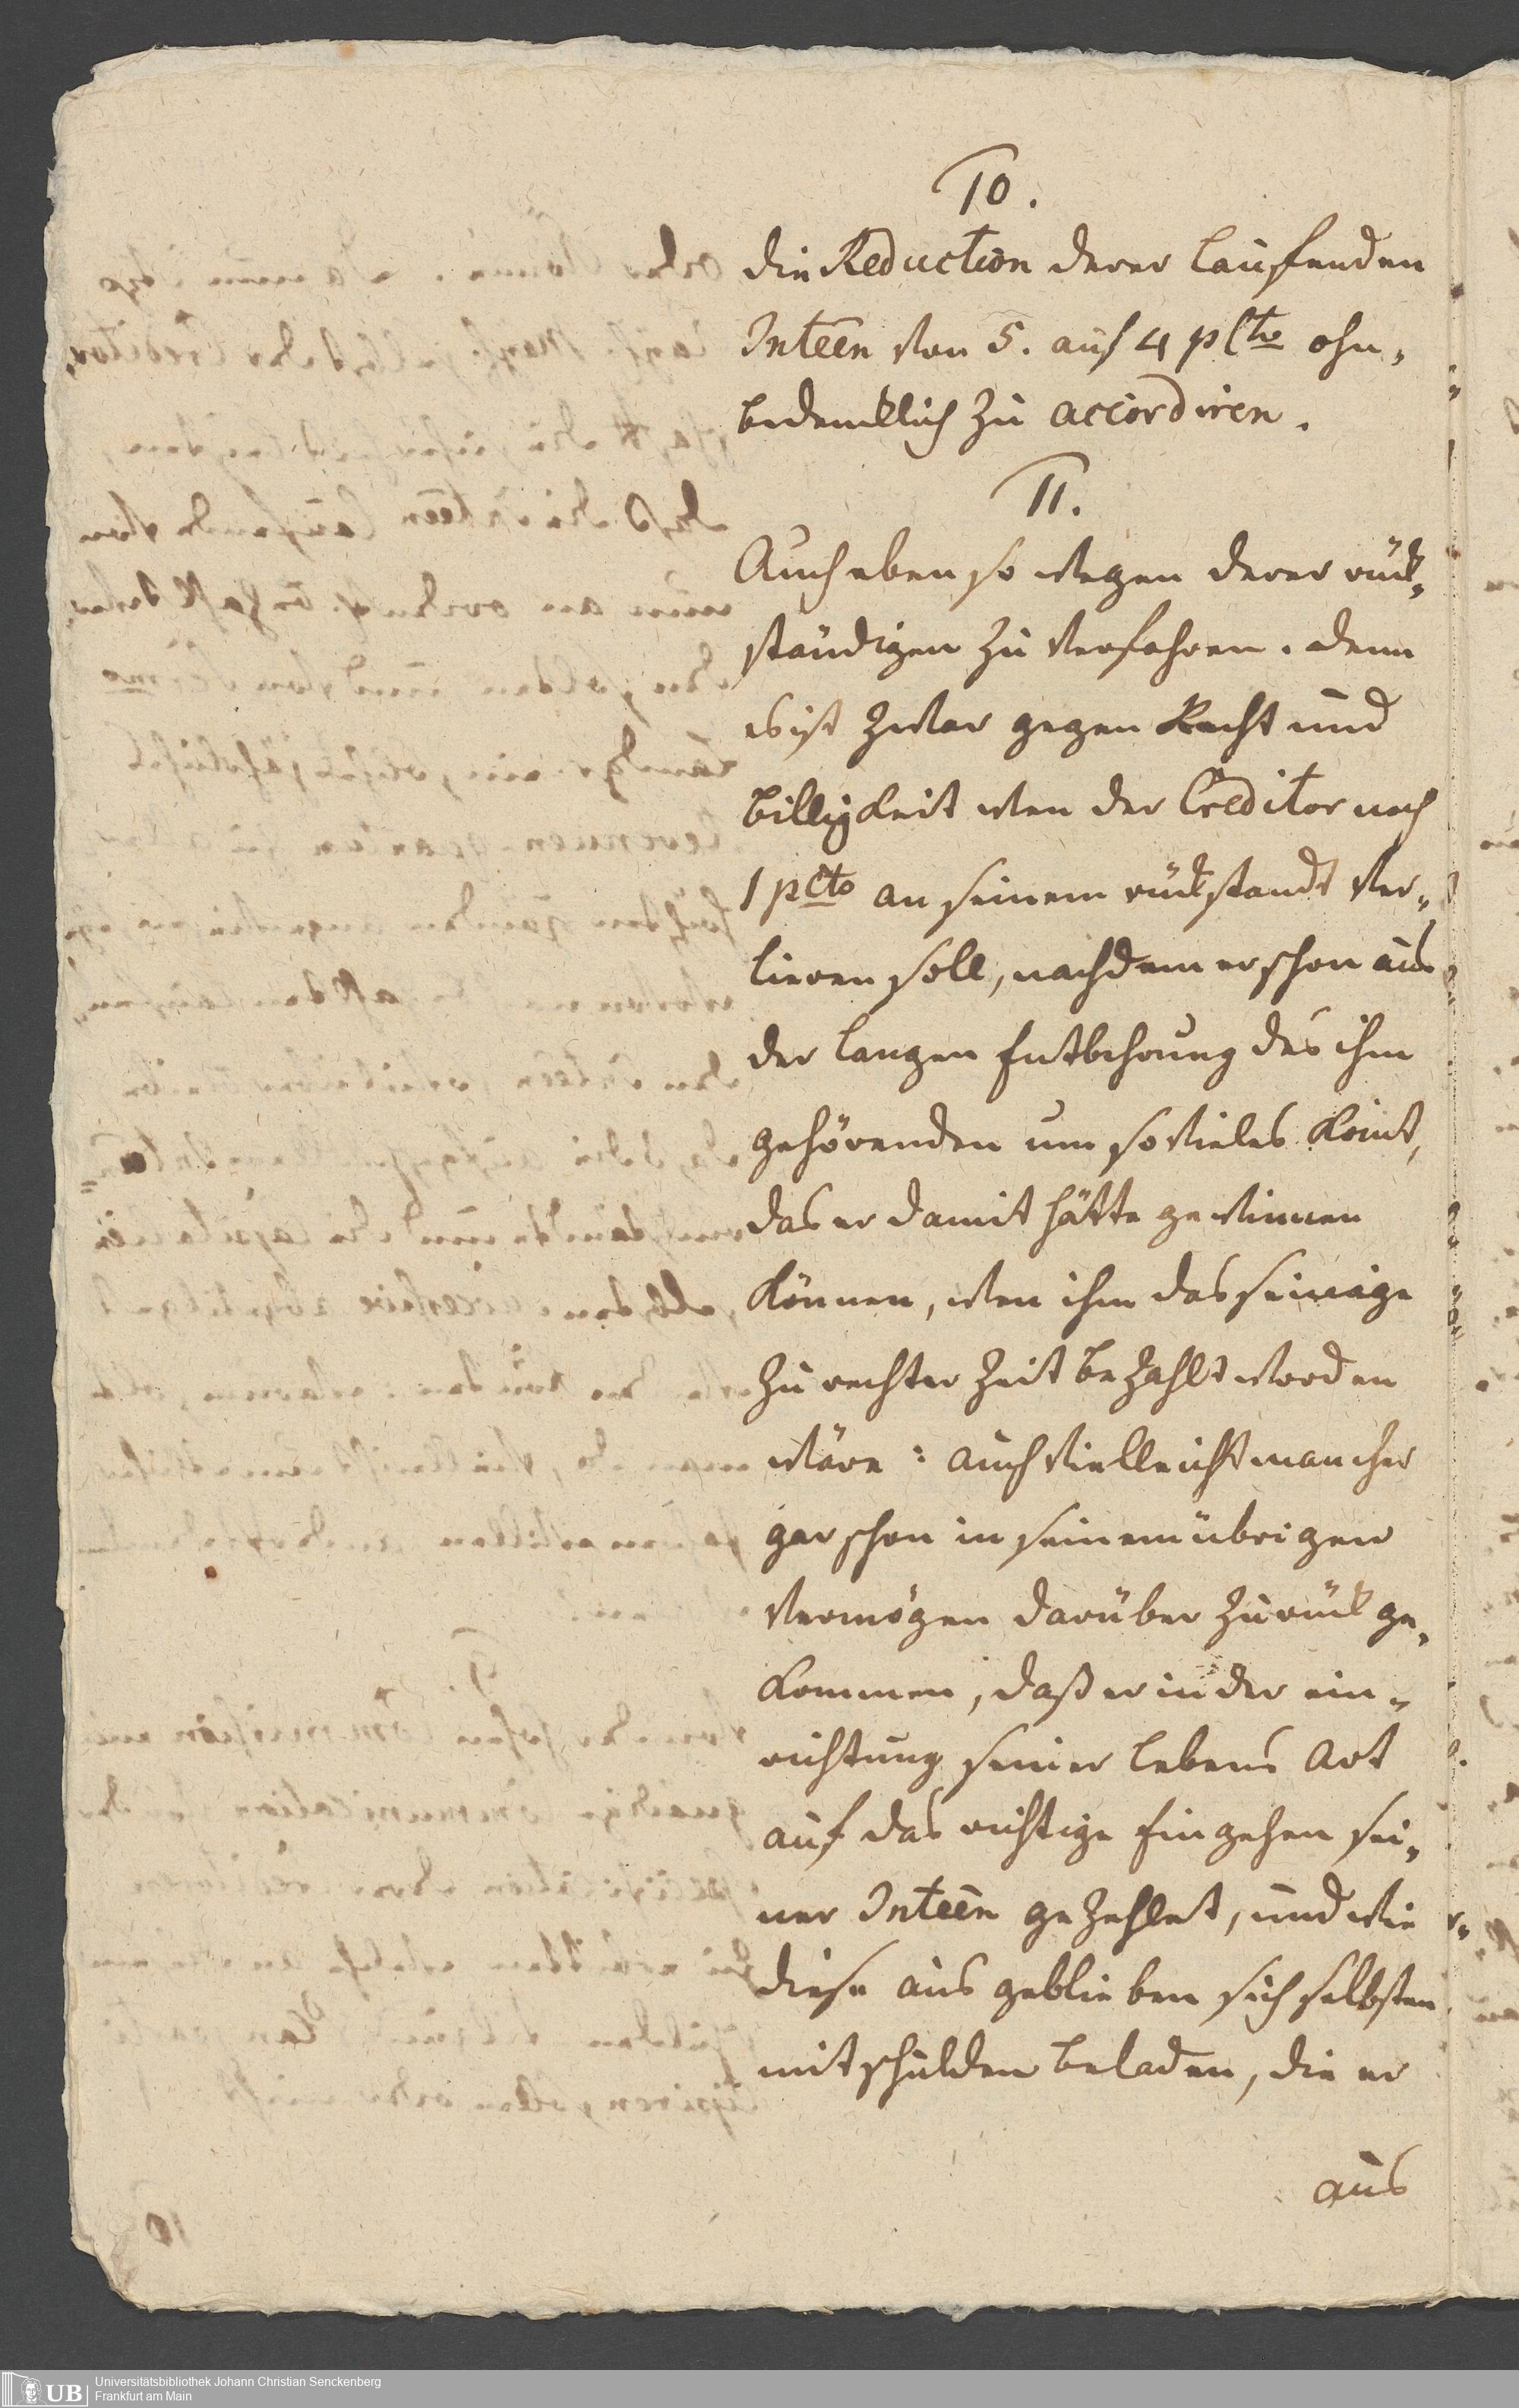 10.
die Reduction derer laufenden
Inteēn von 5. auf 4 pCto ohn„
bedencklich zu accordiren.
11.
Auch eben so wegen derer rück„
ständigen zu verfahren. denn
es ist zwar gegen Recht und
billigkeit wen der Creditor noch
1 pCto an seinem rückstandt ver„
lieren soll, nachdem er schon aus
der langen Entbehrung des ihm
gehörenden um so vieles komt,
das er damit hätte gewinnen
können, wen ihm das seinige
zu rechter Zeit bezahlt worden
wäre: auch vielleicht mancher
gar schon in seinem übrigen
vermögen darüber zurück ge„
kommen, daß er in der ein„
richtung seiner lebens Art
auf das richtige Eingehen sei„
ner Inteēn gezehlet, und wie
diese ausgeblieben sich selbsten
mit schulden beladen, die er
aus
UB
Universitätsbibliothek Johann Christian Senckenberg
Frankfurt am Main